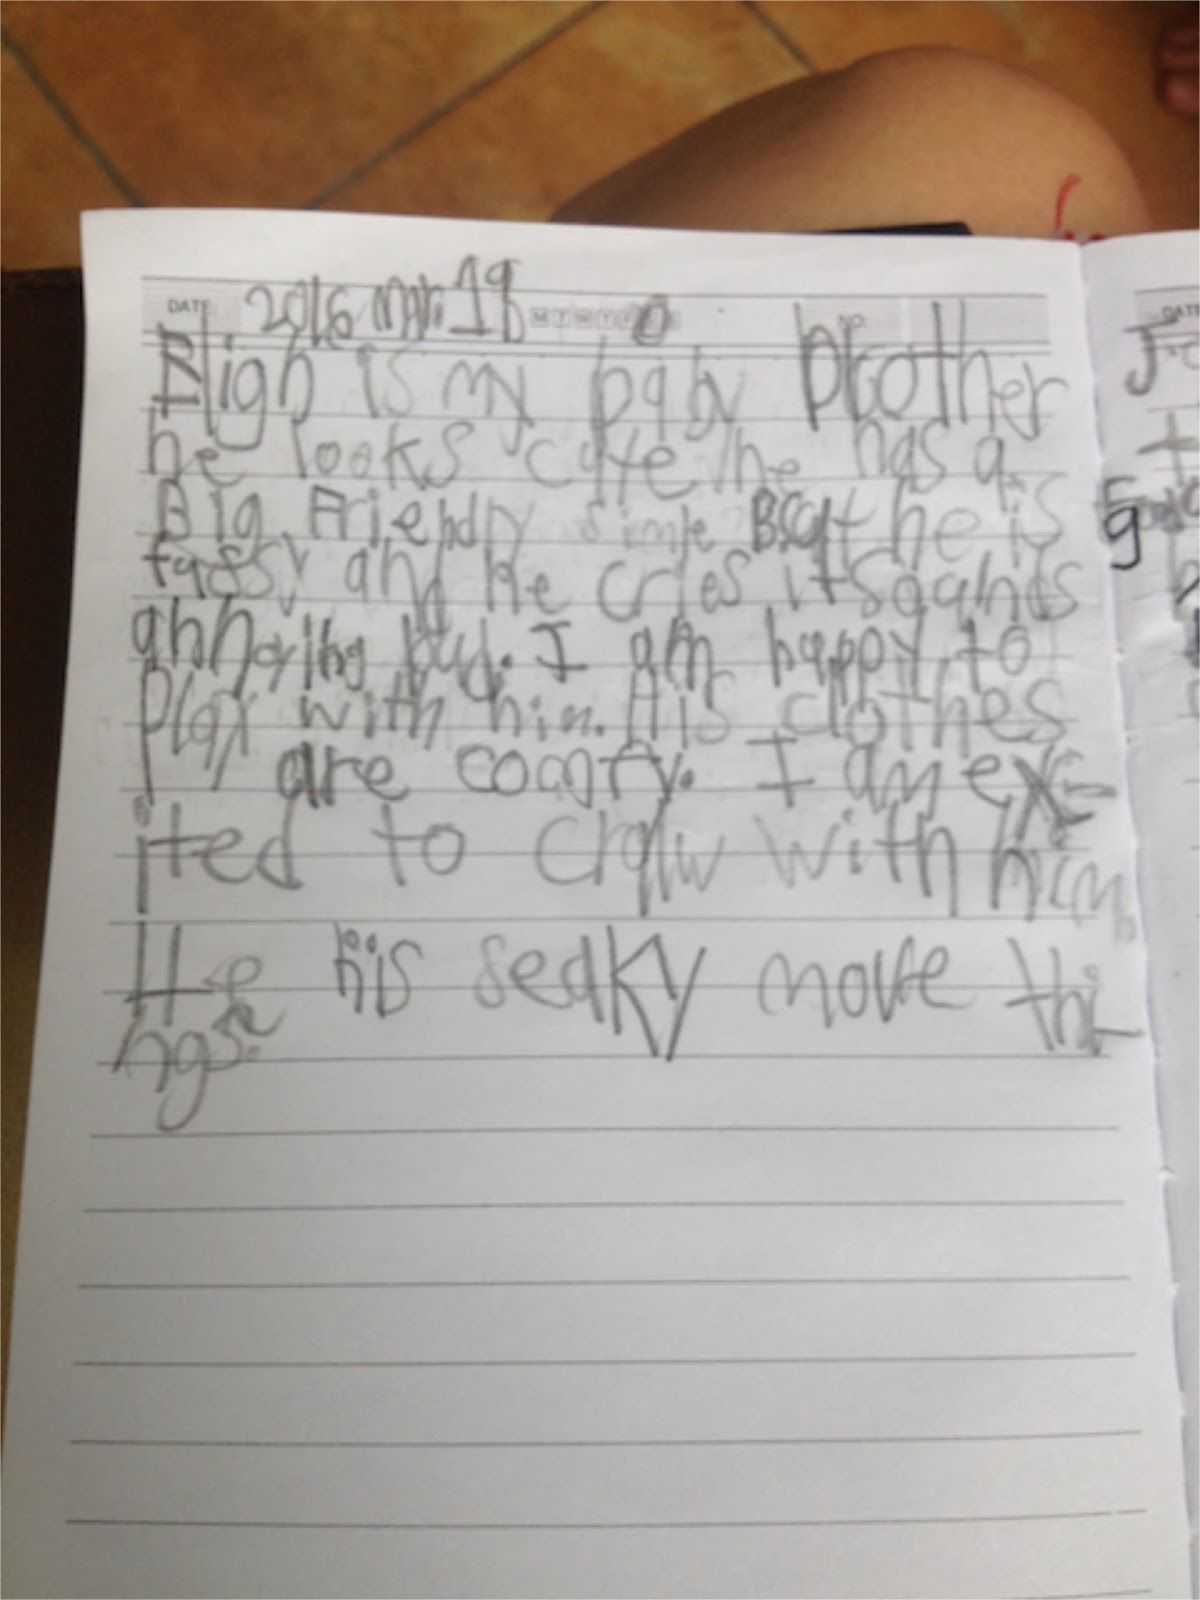 DATE 2016 Mar. 18
is my baby brother
he looks cute he has a
Big Friendly simle But he is
fussy and He cries it saunds
annoying but. I am happy to
Play with him. His clothes
are comfy. I am exc-
ited to cralw with him.
He his seaky move thi
ngs.